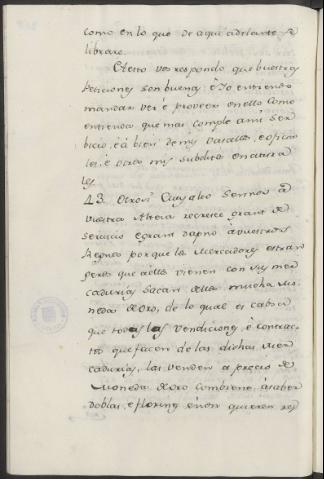 como en lo que de aqui adelante se
librare.
Aesto vos respondo que buestras
Peticiones son buenas, è Yo entiendo
mandar ver è proveer en ello como
entienda que mas cumple a mi ser
bicio, è à bien de mys vasallos, e oficia
les, è otros mys subditos e natura
les.
43. Otrosi muy alto Sennor a
vuestra Alteza recresce grant de
servicio e grant dapno a vuestros
Regnos porque los Mercadores estran
geros que a ellos vienen con sus mer
cadurias sacan dellos mucha mo
neda de oro, de lo qual es cabsa
que todas las vendiciones, è contrac
tos que facen de las dichas mer
cadurias, las venden a precio de
moneda de oro combiene à saber
doblas, e florines è non quieren res